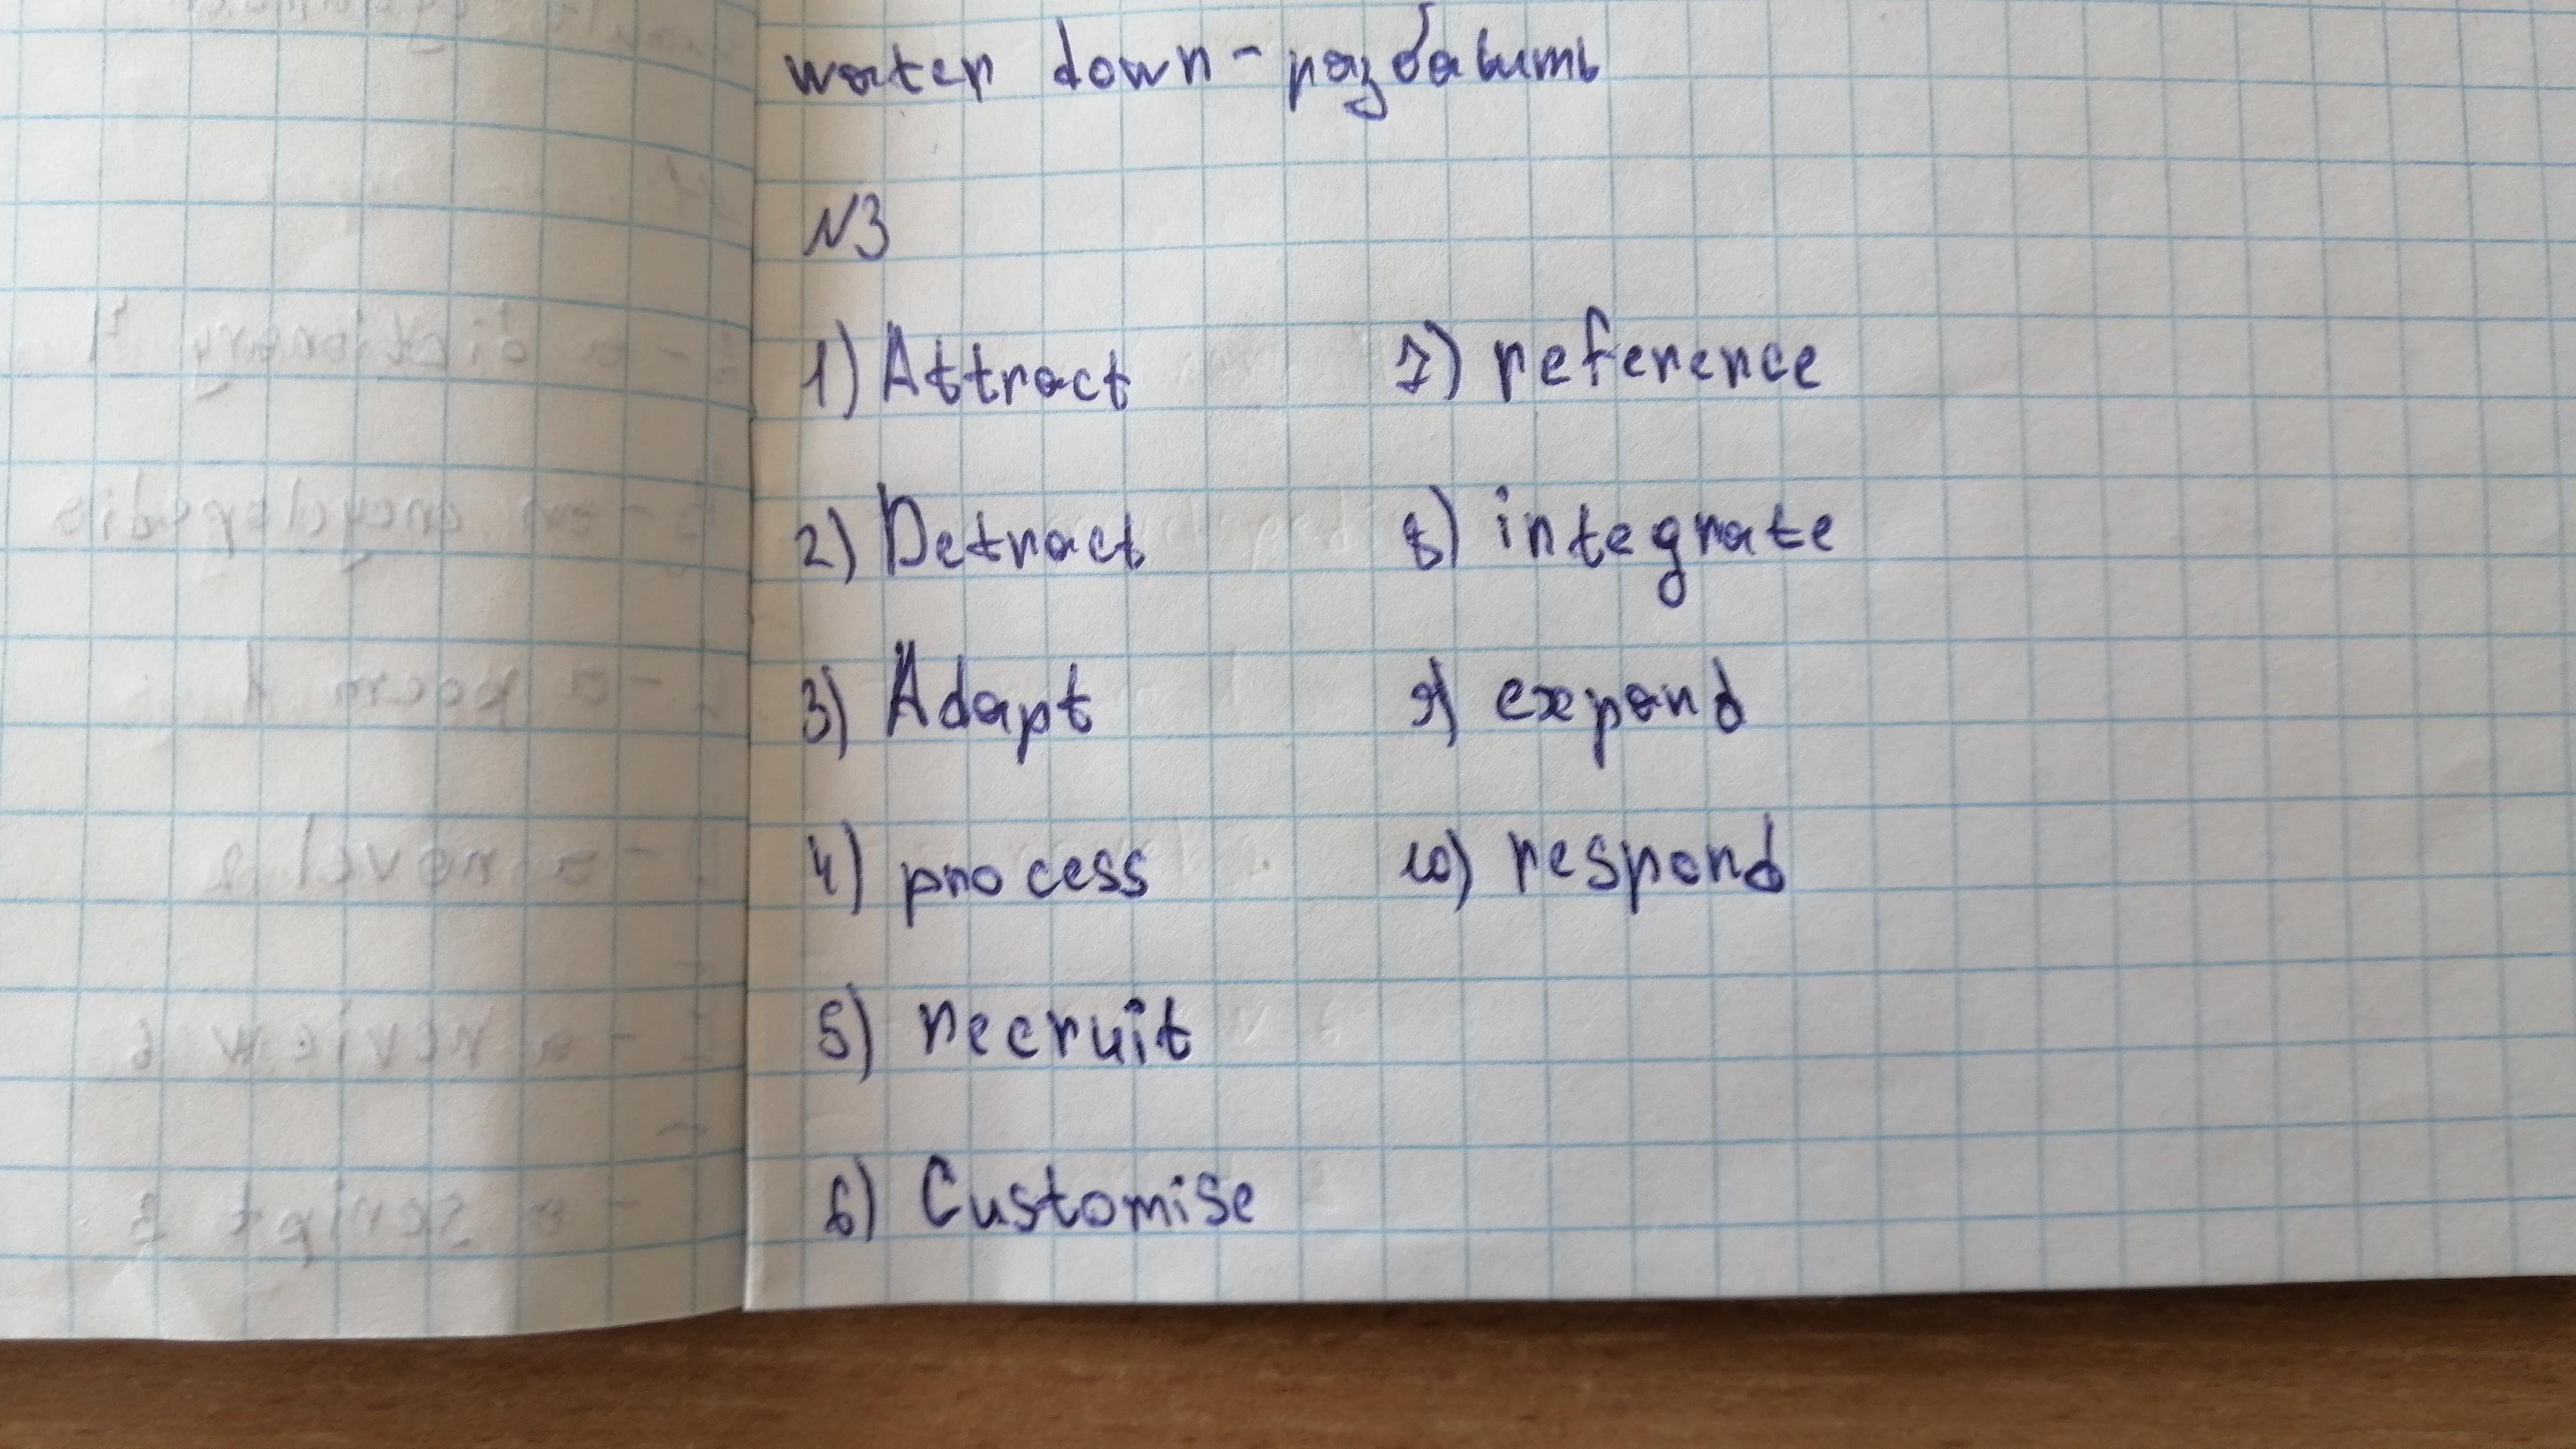 water down - разбавить
N3
1) Attract
2) Detract
3) Adapt
4) process
5) recruit
6) Customise
7) reference
8) integrate
9) expand
10) respond